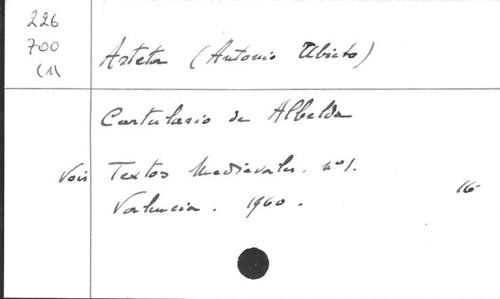 226
700
(1)
Asteta (Antonio Ubieto)
Cartulario de Albelda
Voir Textos Medievales. nº1.
Valencia. 1960.
16